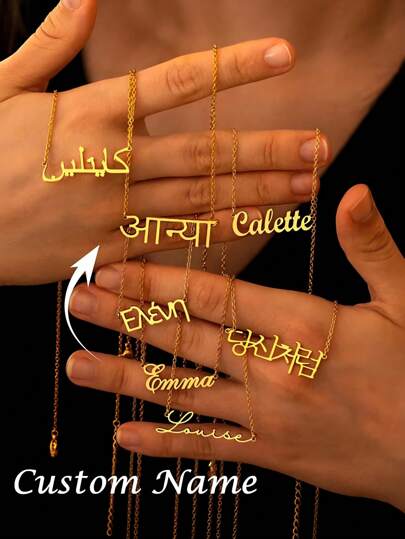 كايتلين
आन्या
Calette
Ελένη
당신처럼
Emma
Louise
Custom Name